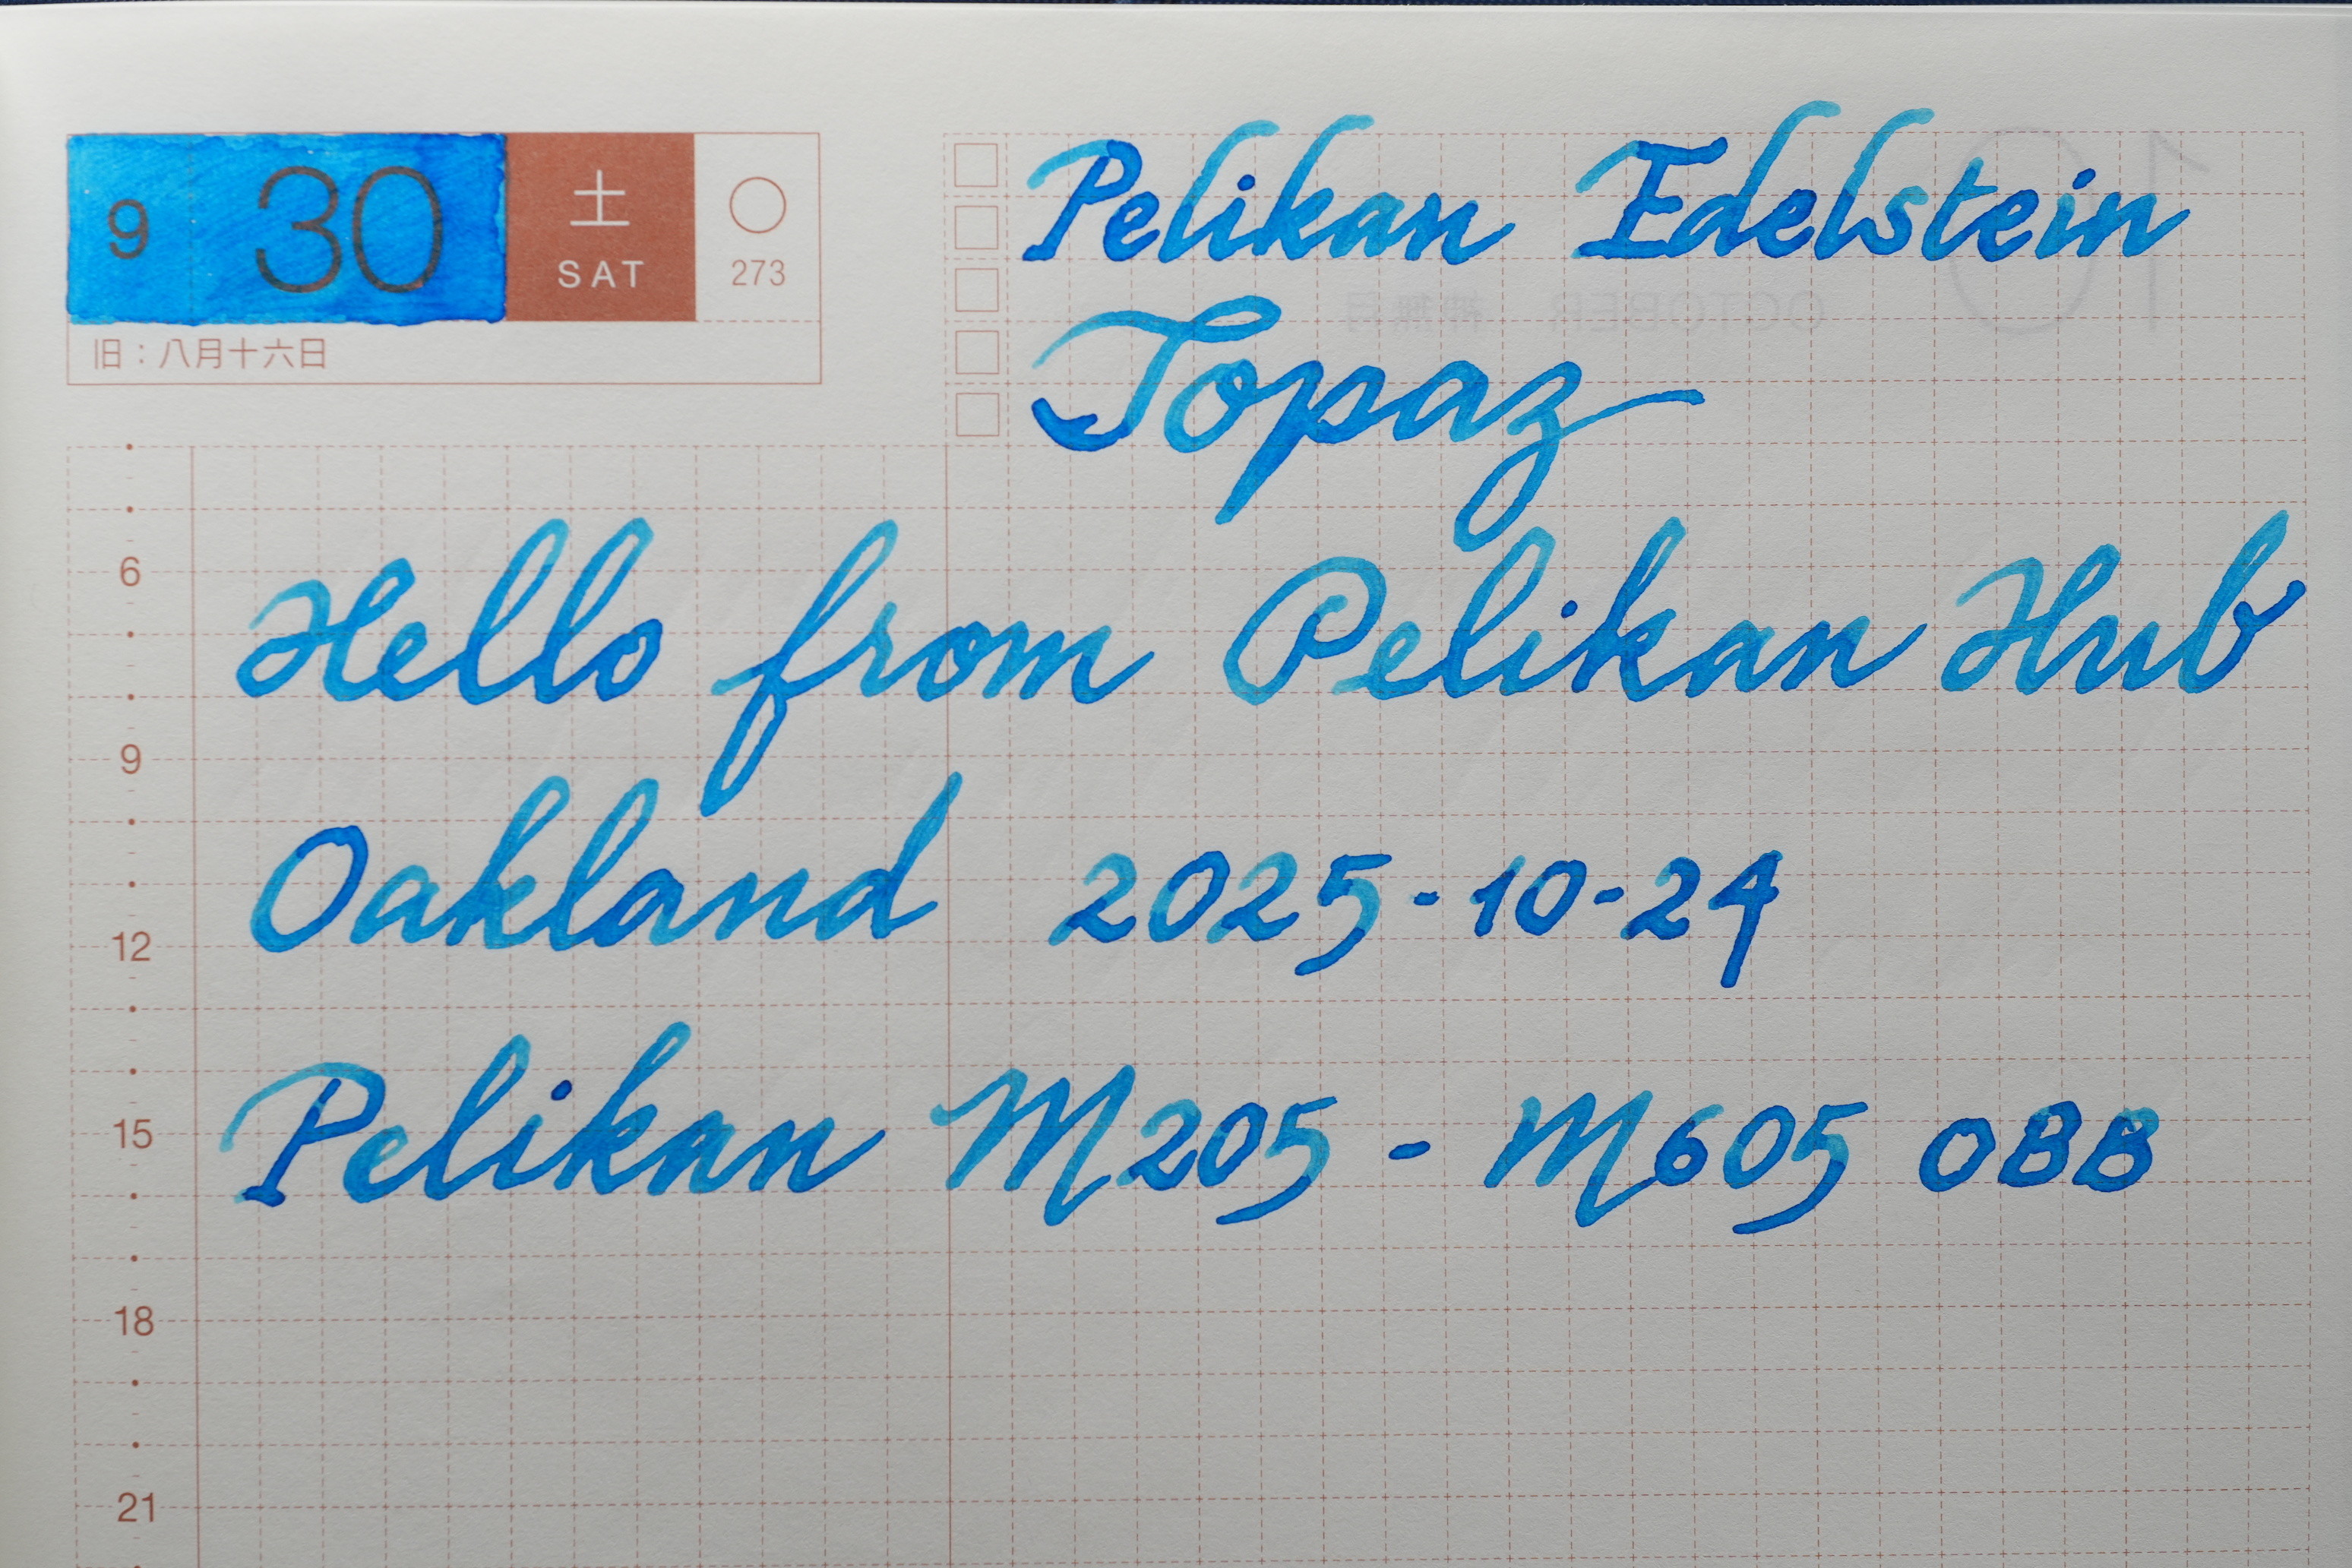 9 30 土 SAT 273
旧：八月十六日
Pelikan Edelstein
Topaz
OCTOBER 神無月
10
6
Hello from Pelikan Hub
9
Oakland 2025-10-24
12
Pelikan M205 - M605 OBB
15
18
21